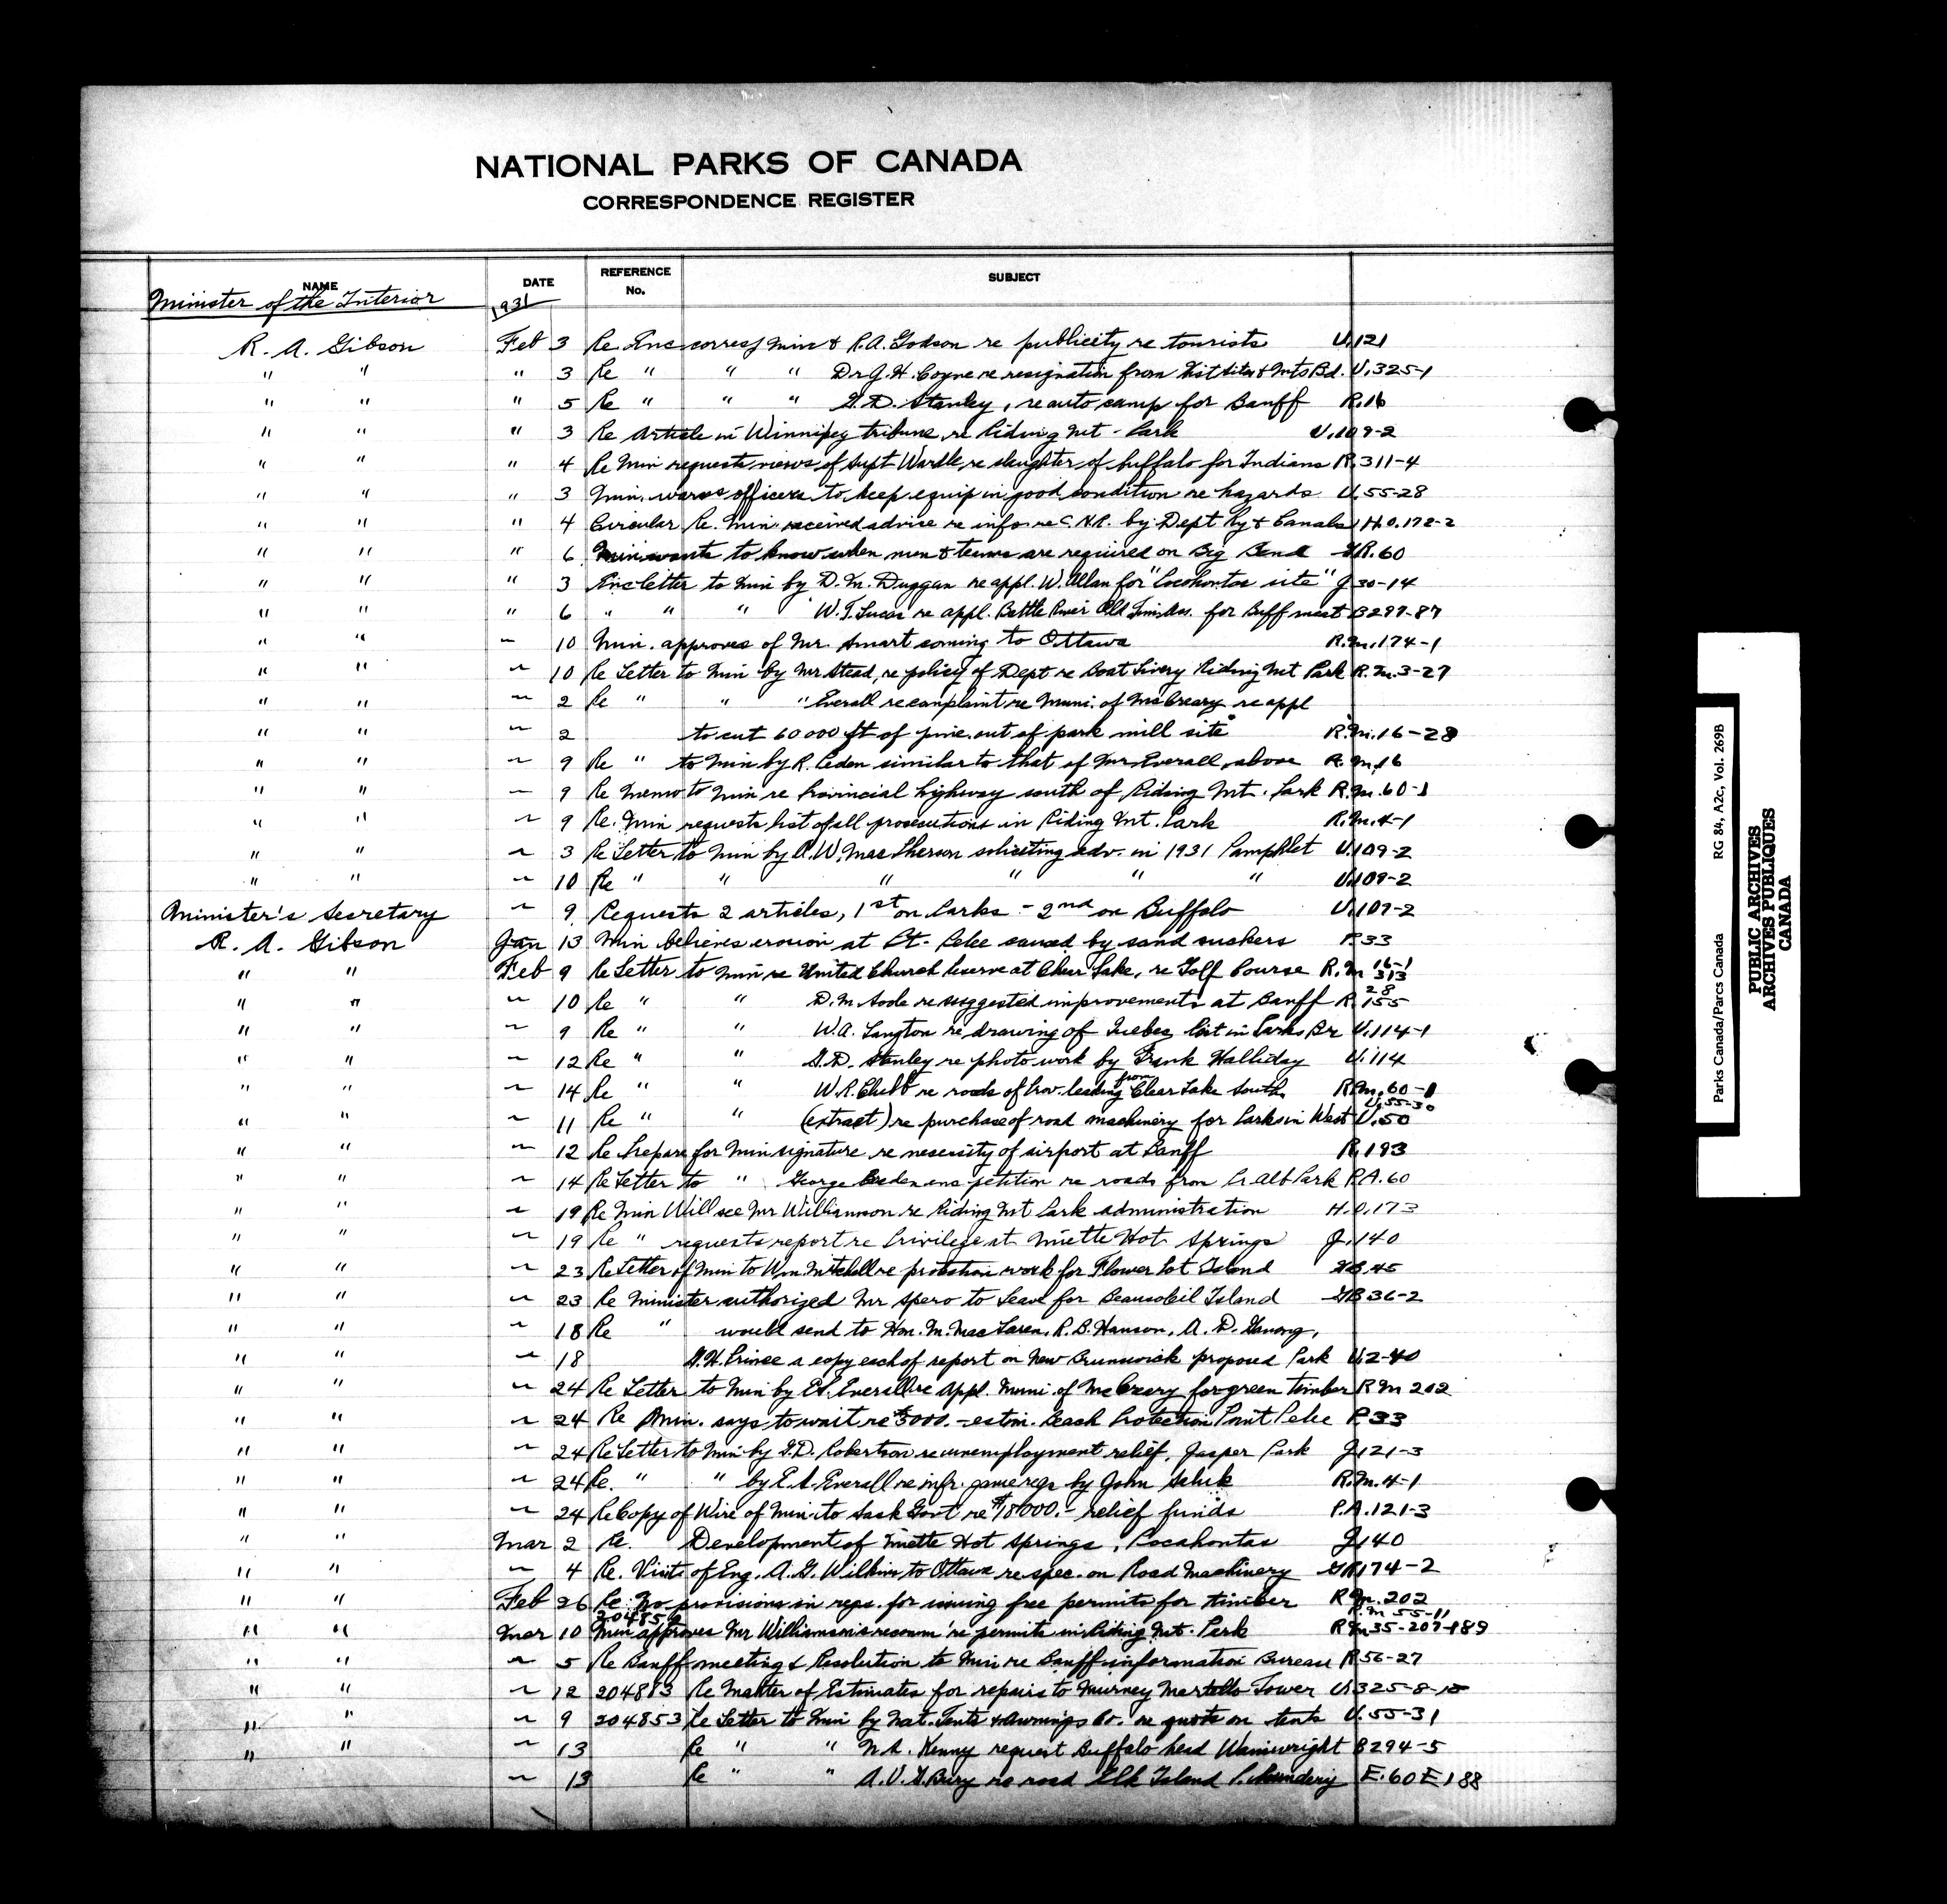 NATIONAL PARKS OF CANADA
CORRESPONDENCE REGISTER
NAME DATE REFERENCE No. SUBJECT
Minister of the Interior 1931
R. A. Gibson Feb 3 Re Enc corresp min & R.A. Godson re publicity re tourists U.121
" " " 3 Re " " " Dr J.H. Coyne re resignation from Hist Sites & Mts Bd. U.325-1
" " " 5 Re " " " G.D. Stanley, re auto camp for Banff R.16
" " " 3 Re Article in Winnipeg tribune, re Riding Mt. Park U.109-2
" " " 4 Re Min requests views of Supt Wardle re slaughter of buffalo for Indians R.311-4
" " " 3 Min. warns officers to keep equip in good condition re hazards U.55-28
" " " 4 Circular Re. Min. received advise re info re C.N.R. by Dept Ry & Canals H.O.172-2
" " " 6 Min wants to know when men & teams are required on Big Bend GR.60
" " " 3 Enc letter to Min by D.M. Duggan re appl. W. Allan for "Pocohontas site" J.30-14
" " " 6 " " " W.T. Lucas re appl. Battle River Old Tim. Ass. for Buff meat B299-87
" " " 10 Min. approves of Mr. Smart coming to Ottawa R.M.174-1
" " " 10 Re Letter to Min by Mr Stead, re policy of Dept re Boat Livery Riding Mt Park R.M.3-27
" " " 2 Re " " " Everall re complaint re Muni. of McCreary re appl
" " " 2 to cut 60000 ft of pine out of park mill site R.M.16-28
" " " 9 Re " to Min by R. Peden similar to that of Mr Everall, above R.M.16
" " " 9 Re Memo to Min re Provincial highway south of Riding Mt. Park R.M.60-1
" " " 9 Re. Min requests list of all prosecutions in Riding Mt. Park R.M.4-1
" " " 3 Re Letter to Min by A.W. MacPherson soliciting adv. in 1931 Pamphlet U.109-2
" " " 10 Re " " " " " " U.109-2
Minister's Secretary " 9 Requests 2 articles, 1st on Parks - 2nd on Buffalo U.109-2
R. A. Gibson Jan 13 Min believes erosion at Pt. Pelee caused by sand suckers P.33
" " Feb 9 Re Letter to Min re United Church Reserve at Clear Lake, re Golf Course R.M 16-1 313
" " " 10 Re " " D.M. Soole re suggested improvements at Banff R. 28 155
" " " 9 Re " " W.A. Langton re drawing of Quebec in Parks Br U.114-1
" " " 12 Re " " G.D. Stanley re photo work by Frank Halliday U.114
" " " 14 Re " " W.R. Clubb re roads of Prov. leading from Clear Lake South R.M.60-1
" " " 11 Re " " (extract) re purchase of road machinery for Parks in West U.55-30 U.50
" " " 12 Re Prepare for Min signature re necessity of airport at Banff R.193
" " " 14 Re Letter to " George Braden enc petition re roads from Pr. Alb Park P.A.60
" " " 19 Re Min Will see Mr Williamson re Riding Mt Park administration H.O.173
" " " 19 Re " requests report re Privilege at Miette Hot Springs J.140
" " " 23 Re Letter of Min to Wm. Mitchell re work for Flower Pot Island GB.45
" " " 23 Re Minister authorized Mr Spero to leave for Beausoleil Island GB36-2
" " " 18 Re " would send to Hon. M. MacLaren, R.B. Hanson, A.D. Ganong,
" " " 18 G.H. Prince a copy each of report on New Brunswick proposed Park U.2-40
" " " 24 Re Letter to Min by E.S. Everall re appl. Muni. of McCreary for green timber R M 202
" " " 24 Re Min. says to wait re $5000. - estim. Beach Protection Point Pelee P.33
" " " 24 Re Letter to Min by G.D. Robertson re unemployment relief, Jasper Park J.121-3
" " " 24 Re. " " by E.S. Everall re infr. game regs by John R.M.4-1
" " " 24 Re Copy of Wire of Min to Sask Govt re $18000.- relief funds P.A.121-3
" " Mar 2 Re. Development of Miette Hot Springs, Pocahontas J.140
" " " 4 Re. Visit of Eng. A.G. Wilkins to Ottawa re spec. on Road Machinery GR174-2
" " Feb 26 Re: No provisions in regs. for issuing free permits for timber R M.202
" " Mar 10 204852 Min approves Mr Williamson's recomm' re permits in Riding Mt. Park R.M 55-11 R M35-207-189
" " " 5 Re Banff meeting & Resolution to Min re Banff information Bureau R.56-27
" " " 12 204813 Re Matter of Estimates for repairs to Murney Martello Tower U.325-8-15
" " " 9 204853 Re Letter to Min by Nat. Tents & Awnings Co. re quote on tents U.55-31
" " " 13 Re " " Kenny request Buffalo head Wainwright B294-5
" 13 Re " " A.U.G. Bury re road Elk Island P. E.60 E188
Parks Canada/Parcs Canada RG 84, A2c, Vol. 269B
PUBLIC ARCHIVES
ARCHIVES PUBLIQUES
CANADA